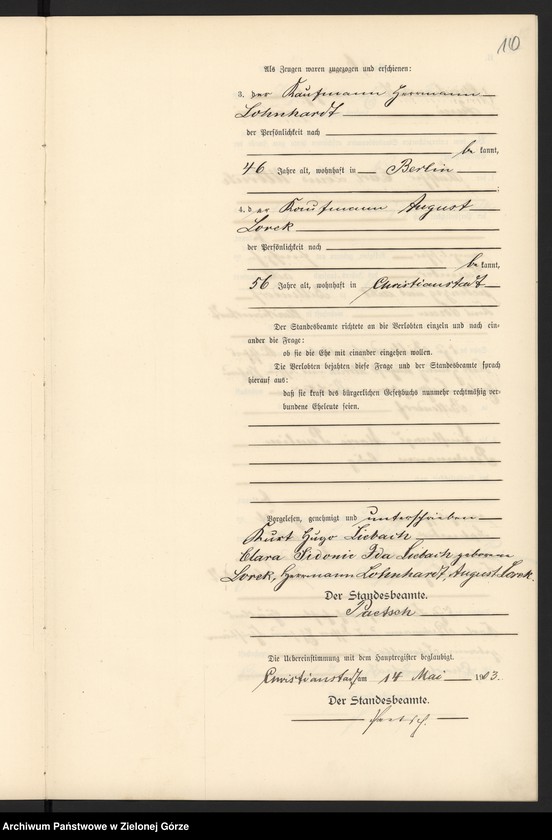 110
Als Zeugen waren zugezogen und erschienen:
3. der Kaufmann Herrmann
Lohnhardt
der Persönlichkeit nach
be kannt,
46 Jahre alt, wohnhaft in Berlin
;
4. der Kaufmann August
Lorek
der Persönlichkeit nach
be kannt,
56 Jahre alt, wohnhaft in Christianstadt
Der Standesbeamte richtete an die Verlobten einzeln und nach ein-
ander die Frage:
ob sie die Ehe mit einander eingehen wollen.
Die Verlobten bejahten diese Frage und der Standesbeamte sprach
hierauf aus:
daß sie kraft des bürgerlichen Gesetzbuchs nunmehr rechtmäßig ver-
bundene Eheleute seien.
Vorgelesen, genehmigt und unterschrieben
Kurt Hugo Liebach
Clara Sidonie Ida Liebach geborene
Lorek, Herrmann Lohnhardt, August Lorek.
Der Standesbeamte.
Paetsch
Die Uebereinstimmung mit dem Hauptregister beglaubigt.
Christianstadt am 14 Mai 1903.
Der Standesbeamte.
Paetsch.
Archiwum Państwowe w Zielonej Górze